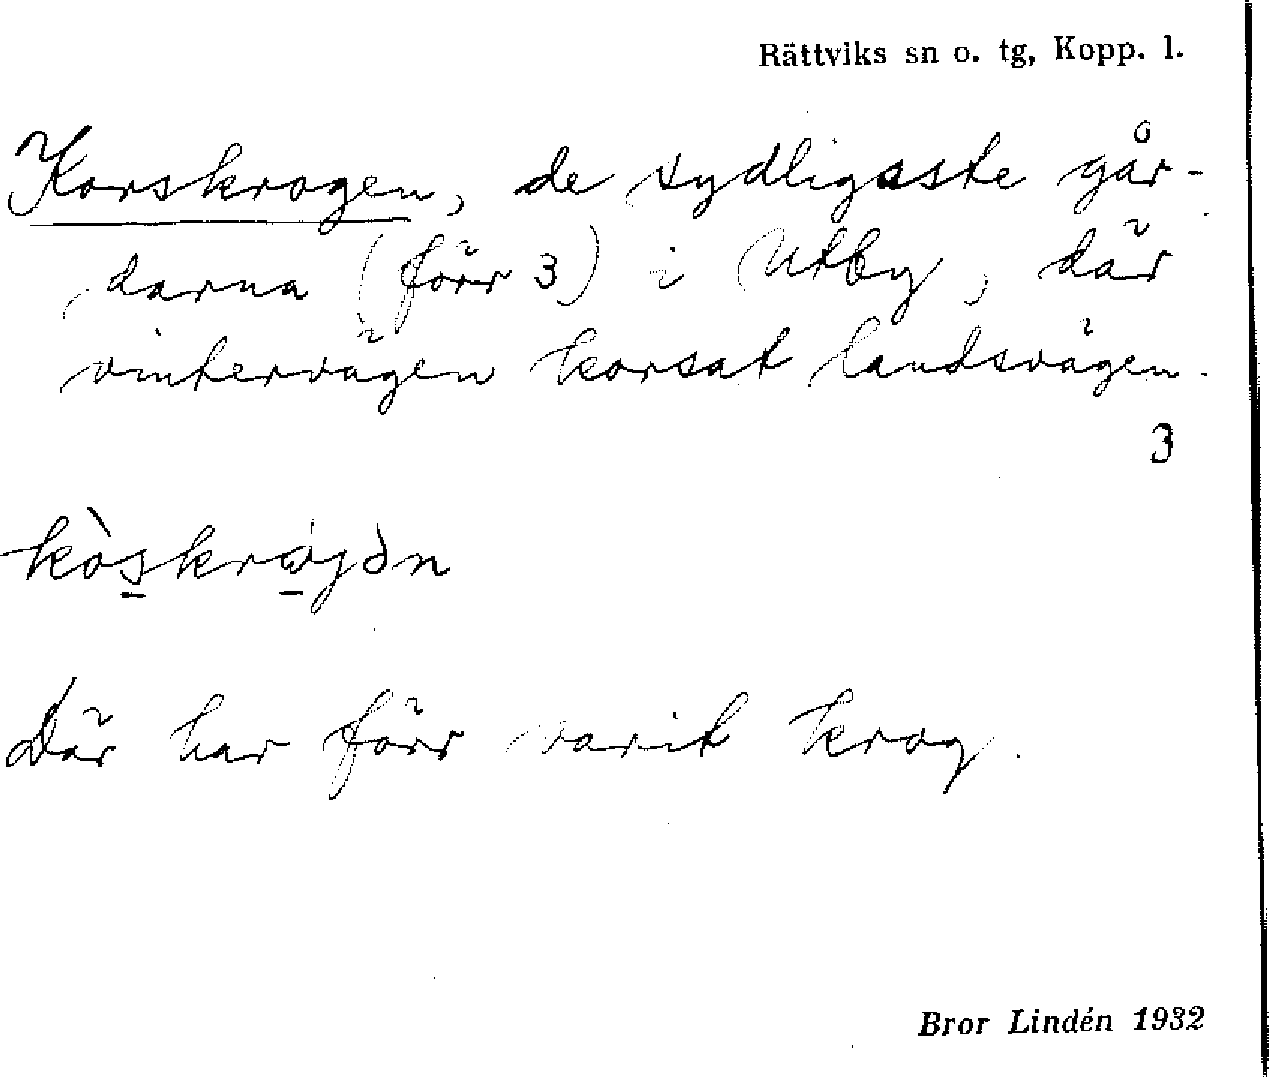 Rättviks sn o. tg, Kopp. l.
Korskrogen, de sydligaste går-
darna (förr 3) i Utby, där
vintervägen korsat landsvägen.
3
kòskrògən
Där har förr varit krog.
Bror Lindén 1932